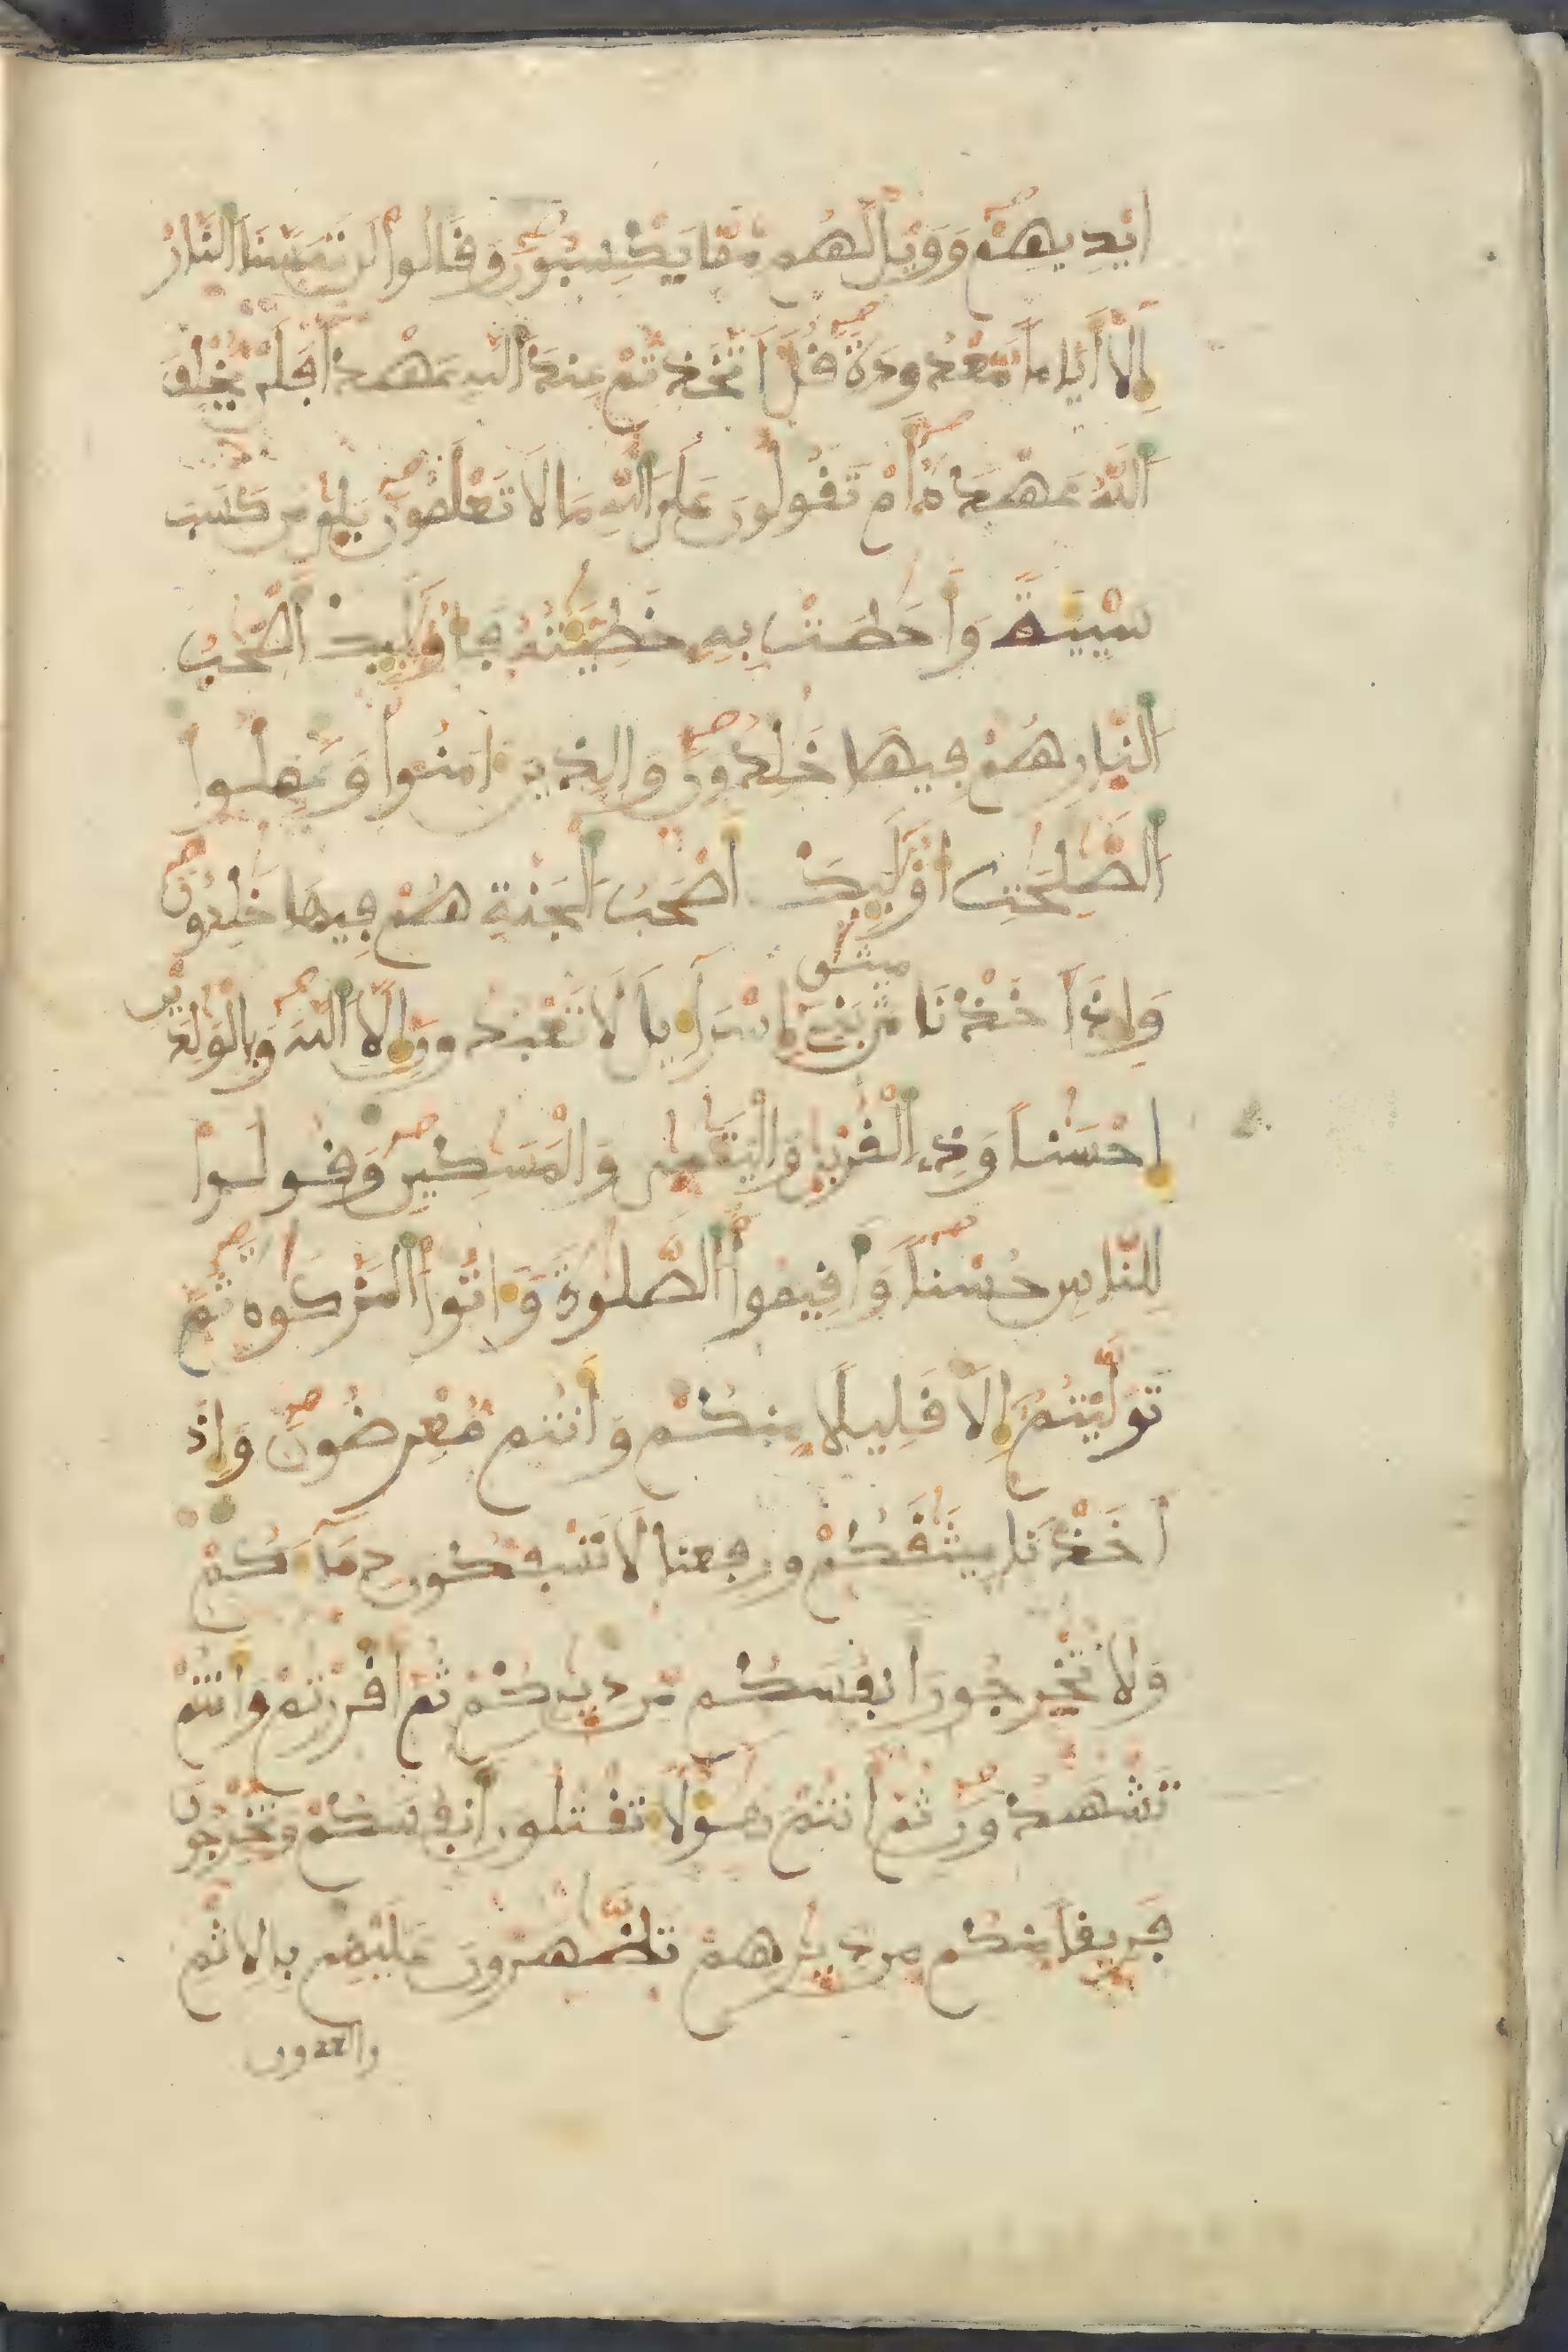 ايديهم وويل لهم مما يكسبون وقالوا لن تمسنا النار
إلا أياما معدودة قل اتخذتم عند الله عهدا فلن يخلف
الله عهده أم تقولون على الله ما لا تعلمون بلى من كسب
سيية وأحطت به خطيته فاوليك أصحب
النار هم فيها خلدون والذين امنوا وعملوا
الصلحت اوليك أصحب الجنة هم فيها خلدون
وإذ أخذنا ميثق بني إسرايل لا تعبدون إلا الله وبالولدين
احسنا وذي القربى واليتمى والمسكين وقولوا
للناس حسنا وأقيموا الصلوة واتوا الزكوة ثم
توليتم إلا قليلا منكم وأنتم معرضون وإذ
أخذنا ميثقكم ورفعنا لا تسفكون دماكم
ولا تخرجون انفسكم من ديركم ثم أقررتم وانتم
تشهدون ثم انتم هولا تقتلون انفسكم وتخرجون
فريقا منكم من ديرهم تظهرون عليهم بالاثم
والعدون